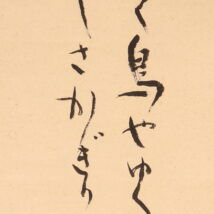 鳥やゆく
さかぎり